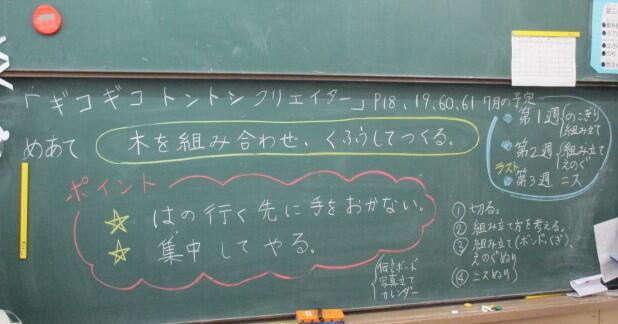 「ギコギコ トントン クリエイター」P18、19、60、61
めあて 木を組み合わせ、くふうしてつくる。
ポイント
☆ はの行く先に手をおかない。
☆ 集中してやる。
7月の予定
第1週 のこぎり
組み立て
第2週 組み立て
えのぐ
ラスト 第3週 ニス
① 切る。
② 組み立て方を考える。
③ 組み立て(ボンド、くぎ)、
えのぐぬり
④ ニスぬり
伝言ボード
写真立て
カレンダー